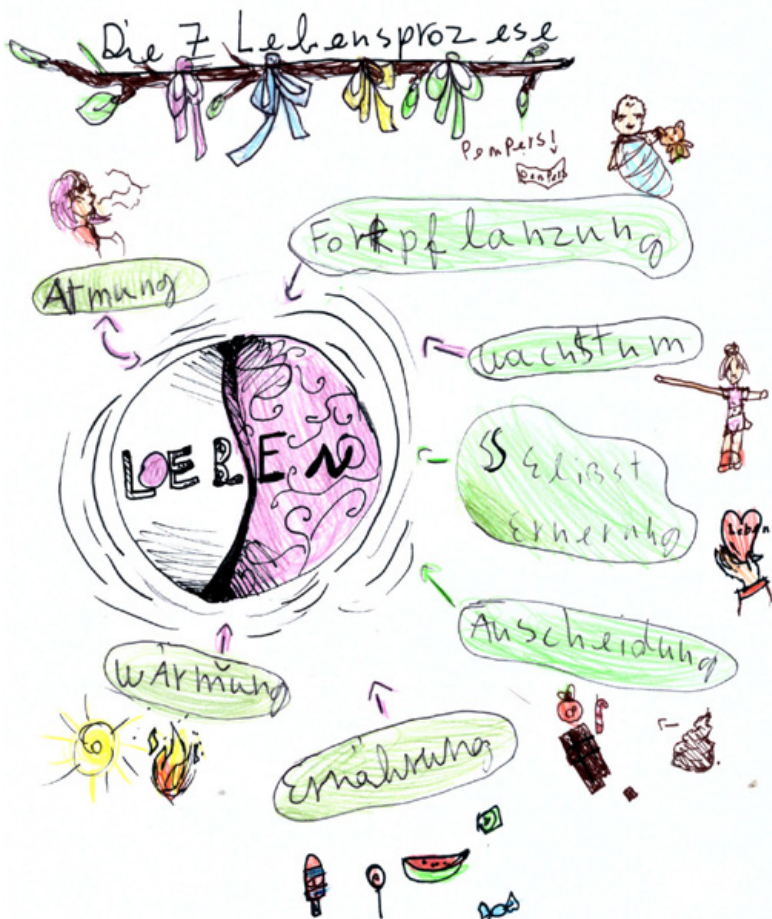 Die 7 Lebensprozese
Pempers!
Pempers
Fortpflanzung
Atmung
wachstum
LOEBEN
SSelbst
Ernerung
Leben
Auscheidung
wärmung
Ernährung